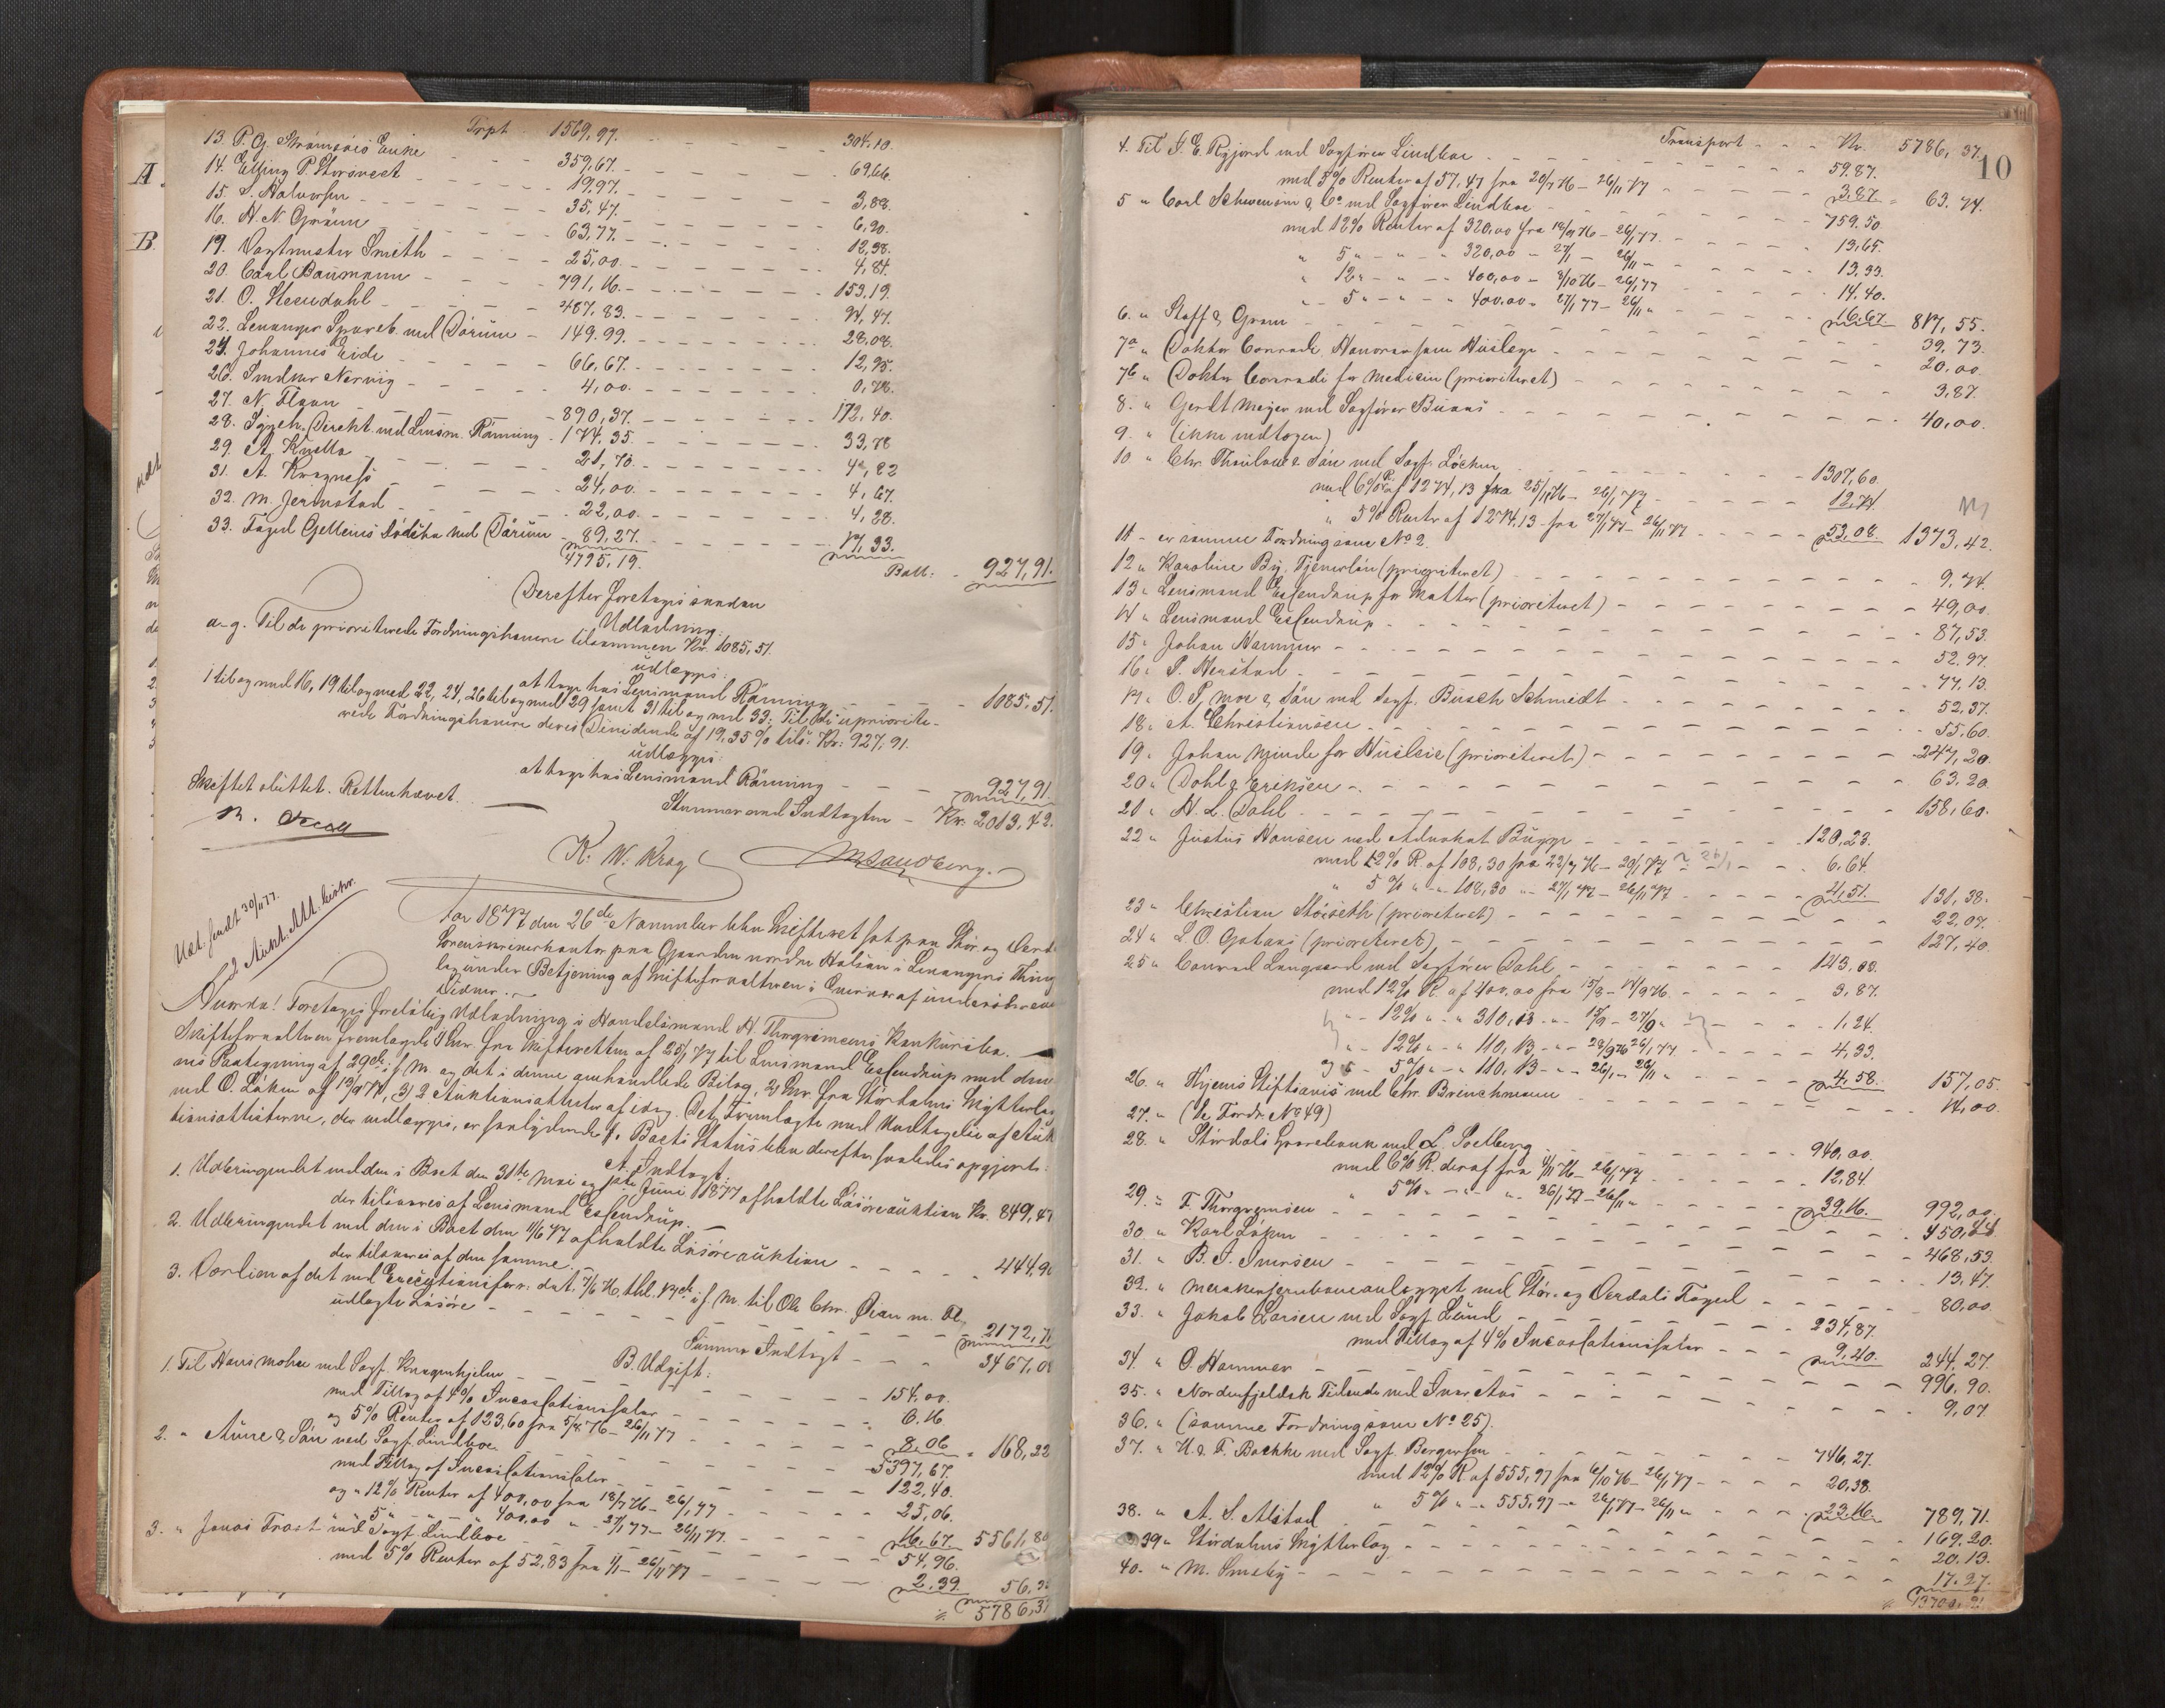 Trpt 1569,97. 304.10.
13. P. G. Strømsøes Enke 359,67. 69,66.
14. Elling P. Storsvect 19,97. 3,88.
15. S. Halvorsen 35,47. 6,90.
16. H. N. Grønn 63,77. 12,38.
19. Vagtmester Smith 25,00. 4,84.
20. Carl Baumann 791,16. 153,19.
21. O. Steendahl 487,83. 94,47.
22. Levanger Spareb. ved Dårum 149.99. 28,08.
24. Johannes Eide 66,67. 12,95.
26. Snedker Nervig 4,00. 0,78.
27. N. Flaan 890,37. 172,40.
28. Sygeh. Direkt. ved Lensm. Rånning 174,35. 33,78
29. A. Knella 21,70. 4,22
31. A. Kragness 24,00. 4,67.
32. M. Jermstad 22,00. 4,28.
33. Foged Gjellerus Dödsbo ved Dårum 89,27. 17,33.
4795,19. Ball: 927,91.
Derefter foretoges saadan
Udlodning.
a-g. Til de prioriterede Fordringshavere tilsammen Kr. 1085,51.
udlægges:
at tage hos Lensmand Rånning 1085,51.
1 til og med 16, 19 til og med 22, 24, 26 til og med 29 samt 31 til og med 33: Til de upriorite-
rede Fordringshavere deres Dividende af 19,35% tils. Kr: 927,91.
udlægges:
at tage hos Lensmand Rånning 927,91.
Summer med Indtægten Kr. 2013,42.
Skiftet sluttet. Retten hævet.
K. W. Krog M Sandberg.
Udt. sendt 30/11 77.
2 Aukt. Att.
Aar 1877 den 26de November blev Skifteret sat paa Stør og Værd
Sorenskriverkontor paa Gaarden nordre Halsan i Levangers Thing
lag under Betjening af Skifteforvalteren i Overvær af underskrevne
Vidner.
Hvorda! Foretoges foreløbig Udlodning i Handelsmand H. Thorgrimsens Konkursbo.
Skifteforvalteren fremlagde 1 Skr. fra Skifteretten af 25/1 77 til Lensmand Eschendrup med den
nes Paategning af 29de s. M. og det i denne omhandlede Bilag, 2) Skr. fra Størdalens Skytterlag
ved O. Löken af 19/9 77, 3) 2 Auktionsattester af idag. Det Fremlagte med Undtagelse af Auk
tionsattesterne, der vedlægges, er saalydende . Boets Status blev derefter saaledes opgjort:
A. Indtægt.
1. Udbringendet ved den i Boet den 31te Mai og 1ste Juni 1877 afholdte Løsøreauktion Kr. 849,47
der tilsvares af Lensmand Eschendrup.
2. Udbringendet ved den i Boet den 11/6 77 afholdte Løsøreauktion 444,90
der tilsvares af den samme.
3. Værdien af det ved Executionsforr. dat. 7/6 76, thl. 17de s. M. til Ole Chr. Øian m. fl.
udlagte Løsøre 2172,71
Summa Indtægt 3467,08
B. Udgift:
1. Til Hans Mohn ved Sagf. Kragenhjelm 154,00.
med Tillæg af 4% Incassationssalær 6.16
og 5% Renter af 123,60 fra 5/8 76 - 26/11 77 8,06 168,22
2. " Aune & Søn ved Sagf. Lindboe 5397,67.
med Tillæg af Incassationssalær 122,40.
og " 12% Renter af 400,00 fra 18/7 76 - 26/1 77 25,06.
" 5 " " " 400,00 " 27/1 77 - 26/11 77. 16,67. 5561,80
3. " Jonas Trast ved Sagf. Lindboe 54,96.
med 5% Renter af 52,83 fra 1/1 - 26/11 77 2,39. 56,35
5786,37
10
Transport Kr. 5786,37.
4. Til I. E. Rygjord ved Sagfører Lindboe 59.87.
med 5% Renter af 57,47 fra 20/7 76 - 26/11 77 3,87 63.74.
5 " Carl Schwensen & Co ved Sagfører Lindboe 759.50
med 12% Renter af 320,00 fra 18/9 76 - 26/1 77 13,65.
" 5 " - " - " 320,00 " 27/1 - 26/11 13,33.
" 12 " - " - 400,00 - 8/10 76 - 26/1 77 14,40.
" 5 " - " - " 400,00 " 27/1 77 - 26/11 " 16,67 817,55.
6. " Staff & Gram 39,73.
7a " Doktor Conradi Honorar som Huslæge 20,00.
7b " Doktor Conradi for Medicin (prioriteret) 3,87.
8. " Gerdt Meyer ved Sagfører Buaas 40,00.
9. " (ikke indtagen)
10. " Chr. Thaulow & Søn ved Sagf. Löchen 1307,60.
med 6% R. af 1274,13 fra 25/11 76 - 26/1 77 12,74
" 5% Renter af 1274.13 - fra 27/1 77 - 26/11 77 53,08. 1373,42.
11 - er samme Fordring som No 2.
12 " Karoline By, Tjenerløn (prioriteret) 9,74.
13 " Lensmand Eschendrup for Skatter (prioriteret) 49,00.
14 " Lensmand Eschendrup 87,53.
15 " Johan Hammer 52.97.
16 " P. Herstad 77.13.
17 " O. P. Moe & Søn ved Sagf. Busch Schmidt 52,37.
18 " A. Christiansen 55,60.
19 " Johan Minde for Husleie (prioriteret) 247,20.
20 " Dahl & Eriksen 63.20
21 " H. L. Dahl 158,60.
22 " Justus Hansen ved Advokat Bugge 120,23.
med 12% R. af 108,30 fra 22/7 76 - 26/1 77 6,64.
" 5% " - " 108,30 " - 27/1 77 - 26/11 77 4,51. 131,38.
23 " Christian Støiseth (prioriteret) 22,07.
24 " L. O. Gotaas (prioriteret) 127,40.
25 " Conrad Langaard ved Sagfører Dahl 143,03.
med 12% R. af 400,00 fra 15/8 - 14/9 76 3,87.
" - 12% " - " 310,13 - " - 15/9 - 27/9 " 1,24.
" - 12% " - " 110,13 - " - 28/9 76 26/1 77 4,33.
" 5% " - " 110,13 - " - 26/1 - 26/11 " 4,58. 157,05.
26. " Hjemis Stiftsavis ved Chr. Brinchmann 14,00.
27. " (Se Fordr. No 49)
28. " Stördals Sparebank ved L. Soelberg 940,00.
med 6% R. deraf fra 4/11 76 - 26/1 77 12,84.
" 5% " - " - " 26/1 77 - 26/11 " 39,16. 992,00.
29. " F. Thorgrimsen 450,44
30 " Karl Löken 468,53.
31. " B. I. Iversen 13,47.
32. " Merakerjernbaneanlægget ved Stør- og Værdals Foged 80,00.
33. " Jakob Larsen ved Sagf. Lund 234,87.
med Tillæg af 4% Incassationssalær 9,40. 244,27.
34. " O. Hammer 996,90.
35. " Nordenfjeldsk Tidende ved Ivar Aas 9,07.
36. " (samme Fordring som No 25).
37. " H. & F. Bachke ved Sagf. Bergersen 746,27.
med 12% R af 555,97 fra 6/10 76 - 26/1 77 20,38.
" 5% " - " 555,97 - " 26/1 77 - 26/11 " 23,16. 789,71.
38. " A. S. Alstad 169,20.
39 " Størdalens Skytterlag 20.13.
40. " M. Smeby 17.27.